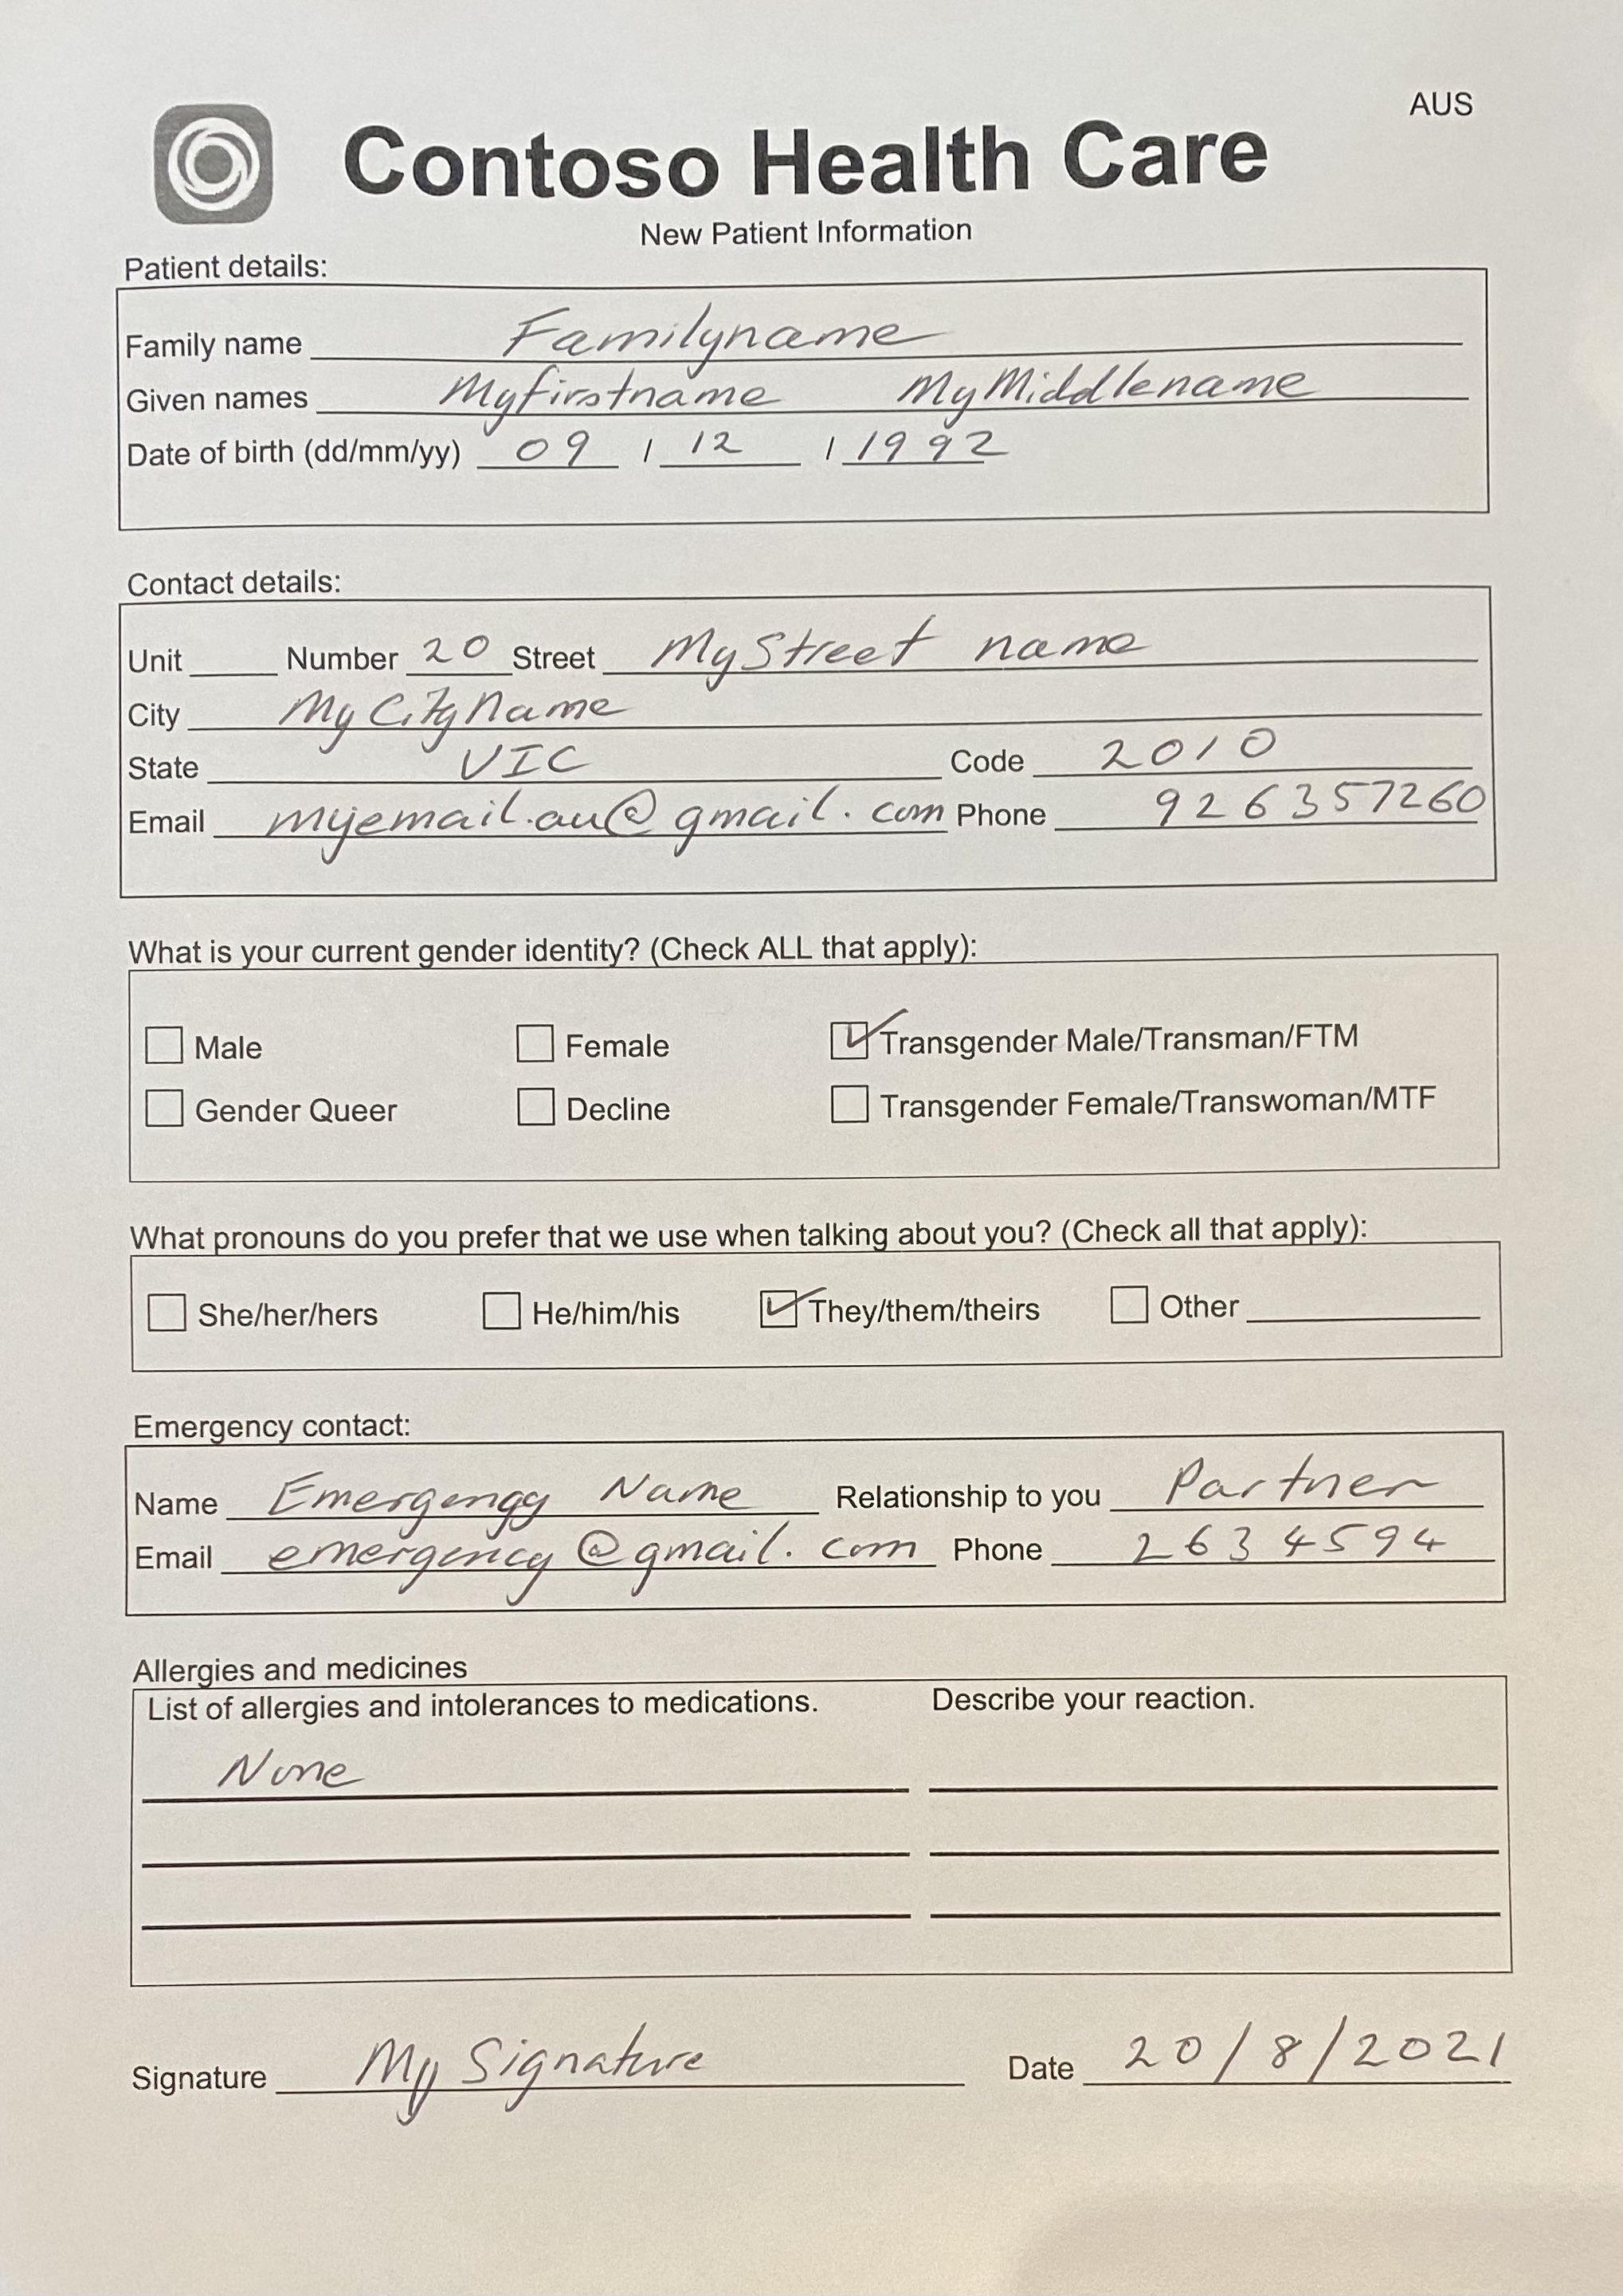 AUS
Contoso Health Care
New Patient Information
Patient details:
Family name Familyname
Given names Myfirstname MyMiddlename
Date of birth (dd/mm/yy) 09 / 12 / 1992
Contact details:
Unit Number 20 Street MyStreet name
City MyCityName
State VIC Code 2010
Email myemail.au@gmail.com Phone 926357260
What is your current gender identity? (Check ALL that apply):
Male Female Transgender Male/Transman/FTM
Gender Queer Decline Transgender Female/Transwoman/MTF
What pronouns do you prefer that we use when talking about you? (Check all that apply):
She/her/hers He/him/his They/them/theirs Other
Emergency contact:
Name Emergengy Name Relationship to you Partner
Email emergency@gmail.com Phone 2634594
Allergies and medicines
List of allergies and intolerances to medications. Describe your reaction.
None
Signature My Signature Date 20/8/2021